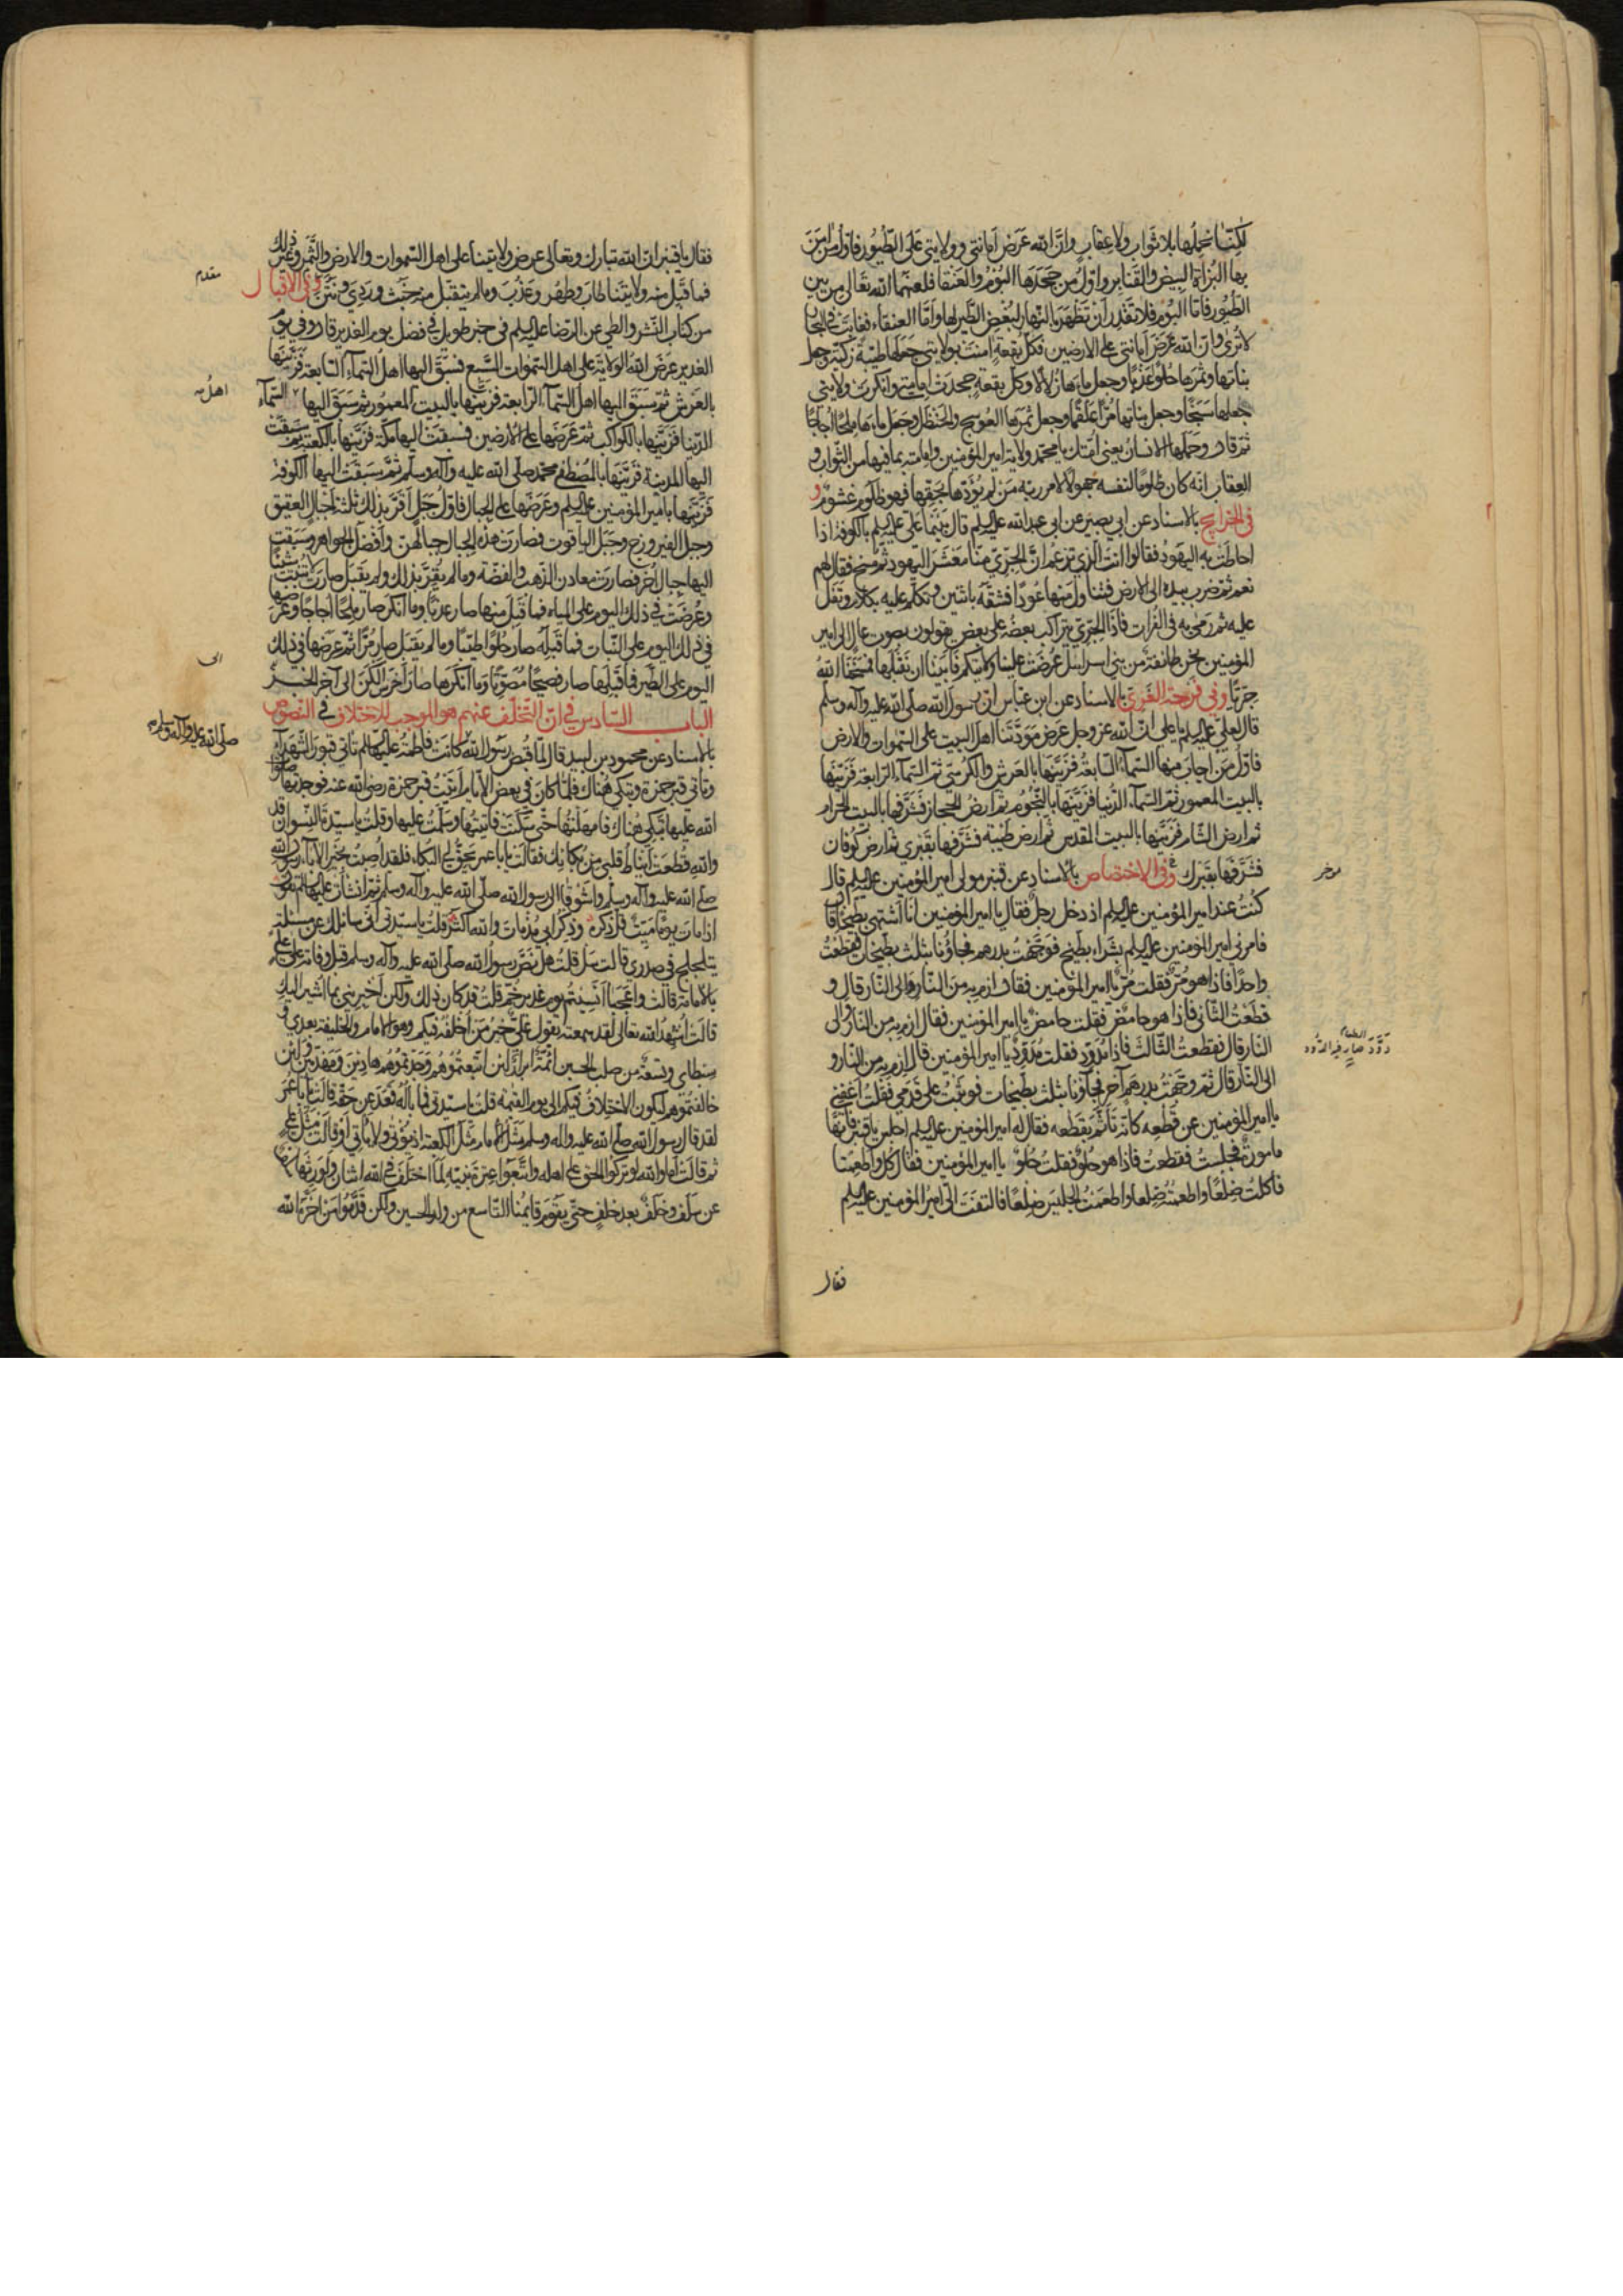 لكننا نحملها بلا ثواب ولا عقاب وانّ الله عرض امانتي وولايتي على الطيور فاوّل من امن
بها البزاة البيض والقنابر واوّل من جحدها البوم والعنقا فلعنهما الله تعالى من بين
الطيور فامّا البوم فلا تقدر ان تظهر بالنهار لبغض الطير لها وامّا العنقاء فغابت في البحار
لا ترى وان الله عرض امانتي على الارضين فكل بقعة امنت بولايتي جعلها طيبة زكيّة وجعل
نباتها وثمرها حلوا عذبا وجعل ماءها زلالا وكل بقعة جحدت امامتي وانكرت ولايتي
جعلها سبخا وجعل نباتها مرّا علقما وجعل ثمرها العوسج والحنظل وجعل ماءها ملحا اجاجا
ثم قال وحملها الانسان يعني امّتك يا محمد ولاية امير المؤمنين وامامته بما فيها من الثواب و
العقاب انه كان ظلوما لنفسه جهولا لامر ربه من لم يؤدّها بحقها فهو ظلوم غشوم و
في الخرايج بالاسناد عن ابي بصير عن ابي عبد الله عليه السلم قال بينما علي عليه السلم بالكوفة اذا
احاطت به اليهود فقالوا انت الذي تزعم انّ الجرّي منا معشر اليهود ثم مسخ فقال لهم
نعم ثم ضرب بيده الى الارض فتناول منها عودا فشقّه باثنين وتكلّم عليه بكلام وتفل
عليه ثم رمى به في الفرات فاذا الجرّي يتراكب بعضه على بعض يقولون بصوت عال الى امير
المؤمنين نحن طائفة من بني اسرائيل عرضت علينا ولايتكم فابينا ان نقبلها فمسخنا الله
جرّيّا وفي فرحة الغري بالاسناد عن ابن عباس ان رسول الله صلّى الله عليه وآله وسلم
قال لعليّ عليه السلم يا علي انّ الله عز وجل عرض مودّتنا اهل البيت على السموات والارض
فاوّل من اجاب منها السماء السابعة فزيّنها بالعرش والكرسي ثم السماء الرابعة فزيّنها
بالبيت المعمور ثم السماء الدنيا فزيّنها بالنجوم ثم ارض الحجاز فشرّفها بالبيت الحرام
ثم ارض الشام فزيّنها بالبيت المقدس ثم ارض طيبة فشرّفها بقبري ثم ارض كوفان
فشرّفها بقبرك وفي الاختصاص بالاسناد عن قنبر مولى امير المؤمنين عليه السلم قال
كنت عند امير المؤمنين عليه السلم اذ دخل رجل فقال يا امير المؤمنين انا اشتهي بطيخا قال
فامرني امير المؤمنين عليه السلم بشراء بطيخ فوجّهت بدرهم فجاؤنا بثلث بطيخات فقطعت
واحدا فاذا هو مرّ فقلت مرّ يا امير المؤمنين فقال ارم به من النار والى النار قال و
قطعت الثاني فاذا هو حامض فقلت حامض يا امير المؤمنين فقال ارم به من النار والى
النار قال فقطعت الثالث فاذا مدوّد فقلت مدوّد يا امير المؤمنين قال ارم به من النار و
الى النار قال ثم وجّهت بدرهم آخر فجاؤنا بثلث بطيخات فوثبت على قدمي فقلت اعفني
يا امير المؤمنين عن قطعه كانه تأثّم بقطعه فقال له امير المؤمنين عليه السلم اجلس يا قنبر فانها
مامورة فجلست فقطعت فاذا هو حلو فقلت حلو يا امير المؤمنين فقال كل واطعمنا
فاكلت ضلعا واطعمته ضلعا واطعمت الجليس ضلعا فالتفت اليّ امير المؤمنين عليه السلم
فقال
موخر
دوّد الطعام صار فيه الدود
فقال يا قنبر ان الله تبارك وتعالى عرض ولايتنا على اهل السموات والارض والثمر وغير ذلك
فما قبل منه ولايتنا طاب وطهر وعذب وما لم يتقبل منه خبث وردي ونتن وفي الاقبال
من كتاب النشر والطي عن الرضا عليه السلم في خبر طويل في فضل يوم الغدير قال وفي يوم
الغدير عرض الله الولاية على اهل السموات السبع فسبق اليها اهل السماء السابعة فزيّنها
بالعرش ثم سبق اليها اهل السماء الرابعة فزيّنها بالبيت المعمور ثم سبق اليها السماء
الدنيا فزيّنها بالكواكب ثم عرضها على الارضين فسبقت اليها مكّة فزيّنها بالكعبة ثم سبقت
اليها المدينة فزيّنها بالمصطفى محمد صلّى الله عليه وآله وسلم ثم سبقت اليها الكوفة
فزيّنها بامير المؤمنين عليه السلم وعرضها على الجبال فاوّل جبل اقرّ بذلك ثلثة اجبال العقيق
وجبل الفيروزج وجبل الياقوت فصارت هذه الجبال جبالهن وافضل الجواهر وسبقت
اليها جبال اخر فصارت معادن الذهب والفضة وما لم يقرّ بذلك ولم يقبل صارت لا تنبت شيئا
وعرضت في ذلك اليوم على المياه فما قبل منها صار عذبا وما انكر صار ملحا اجاجا وعرضها
في ذلك اليوم على النبات فما قبله صار حلوا طيّبا وما لم يقبل صار مرّا ثم عرضها في ذلك
اليوم على الطير فما قبلها صار فصيحا مصوّتا وما انكرها صار اخرس الكن الى آخر الخبر
الباب السادس في ان التخلّف عنهم هو الموجب للاختلاف في النصوص
بالاسناد عن محمود بن لبيد قال لمّا قبض رسول الله كانت فاطمة عليها السلم تاتي قبور الشهداء
وتاتي قبر حمزة وتبكي هناك فلمّا كان في بعض الايام اتيت قبر حمزة رضي الله عنه فوجدتها صلوات
الله عليها تبكي هناك فامهلتها حتى سكنت فاتيتها وسلّمت عليها وقلت يا سيّدة النسوان قد
والله قطعت انياط قلبي من بكائك فقالت يا با عمر يحقّ لي البكاء فلقد اصبت بخير الاباء رسول الله
صلى الله عليه وآله وسلم واشوقاه الى رسول الله صلّى الله عليه وآله وسلم ثم انشأت عليها السلم تقول
اذا مات يوما ميّت قلّ ذكره وذكر ابي مذ مات والله اكثر قلت يا سيّدتي اني سائلك عن مسئلة
يتلجلج في صدري قالت سل قلت هل نصّ رسول الله صلّى الله عليه وآله وسلم قبل وفاته على عليّ
بالامامة قالت واعجبا انسيتم يوم غدير خم قلت قد كان ذلك ولكن اخبريني بما اشير اليك
قالت اشهد الله تعالى لقد سمعته يقول عليّ خير من اخلفه فيكم وهو الامام والخليفة بعدي و
سبطاي وتسعة من صلب الحسين ائمّة ابرار لئن اتبعتموهم وجدتموهم هادين مهديين ولئن
خالفتموهم ليكون الاختلاف فيكم الى يوم القيمة قلت يا سيّدتي فما باله قعد عن حقّه قالت يا با عمر
لقد قال رسول الله صلّى الله عليه وآله وسلم مثل الامام مثل الكعبة اذ تؤتى ولا ياتي او قالت مثل علي
ثم قالت اما والله لو تركوا الحق على اهله واتّبعوا عترة نبيّه لما اختلف في الله اثنان ولورثها سلف
عن سلف وخلف بعد خلف حتى يقوم قائمنا التاسع من ولد الحسين ولكن قدّموا من اخّره الله
مقدم
صلّى الله عليه وآله وسلم